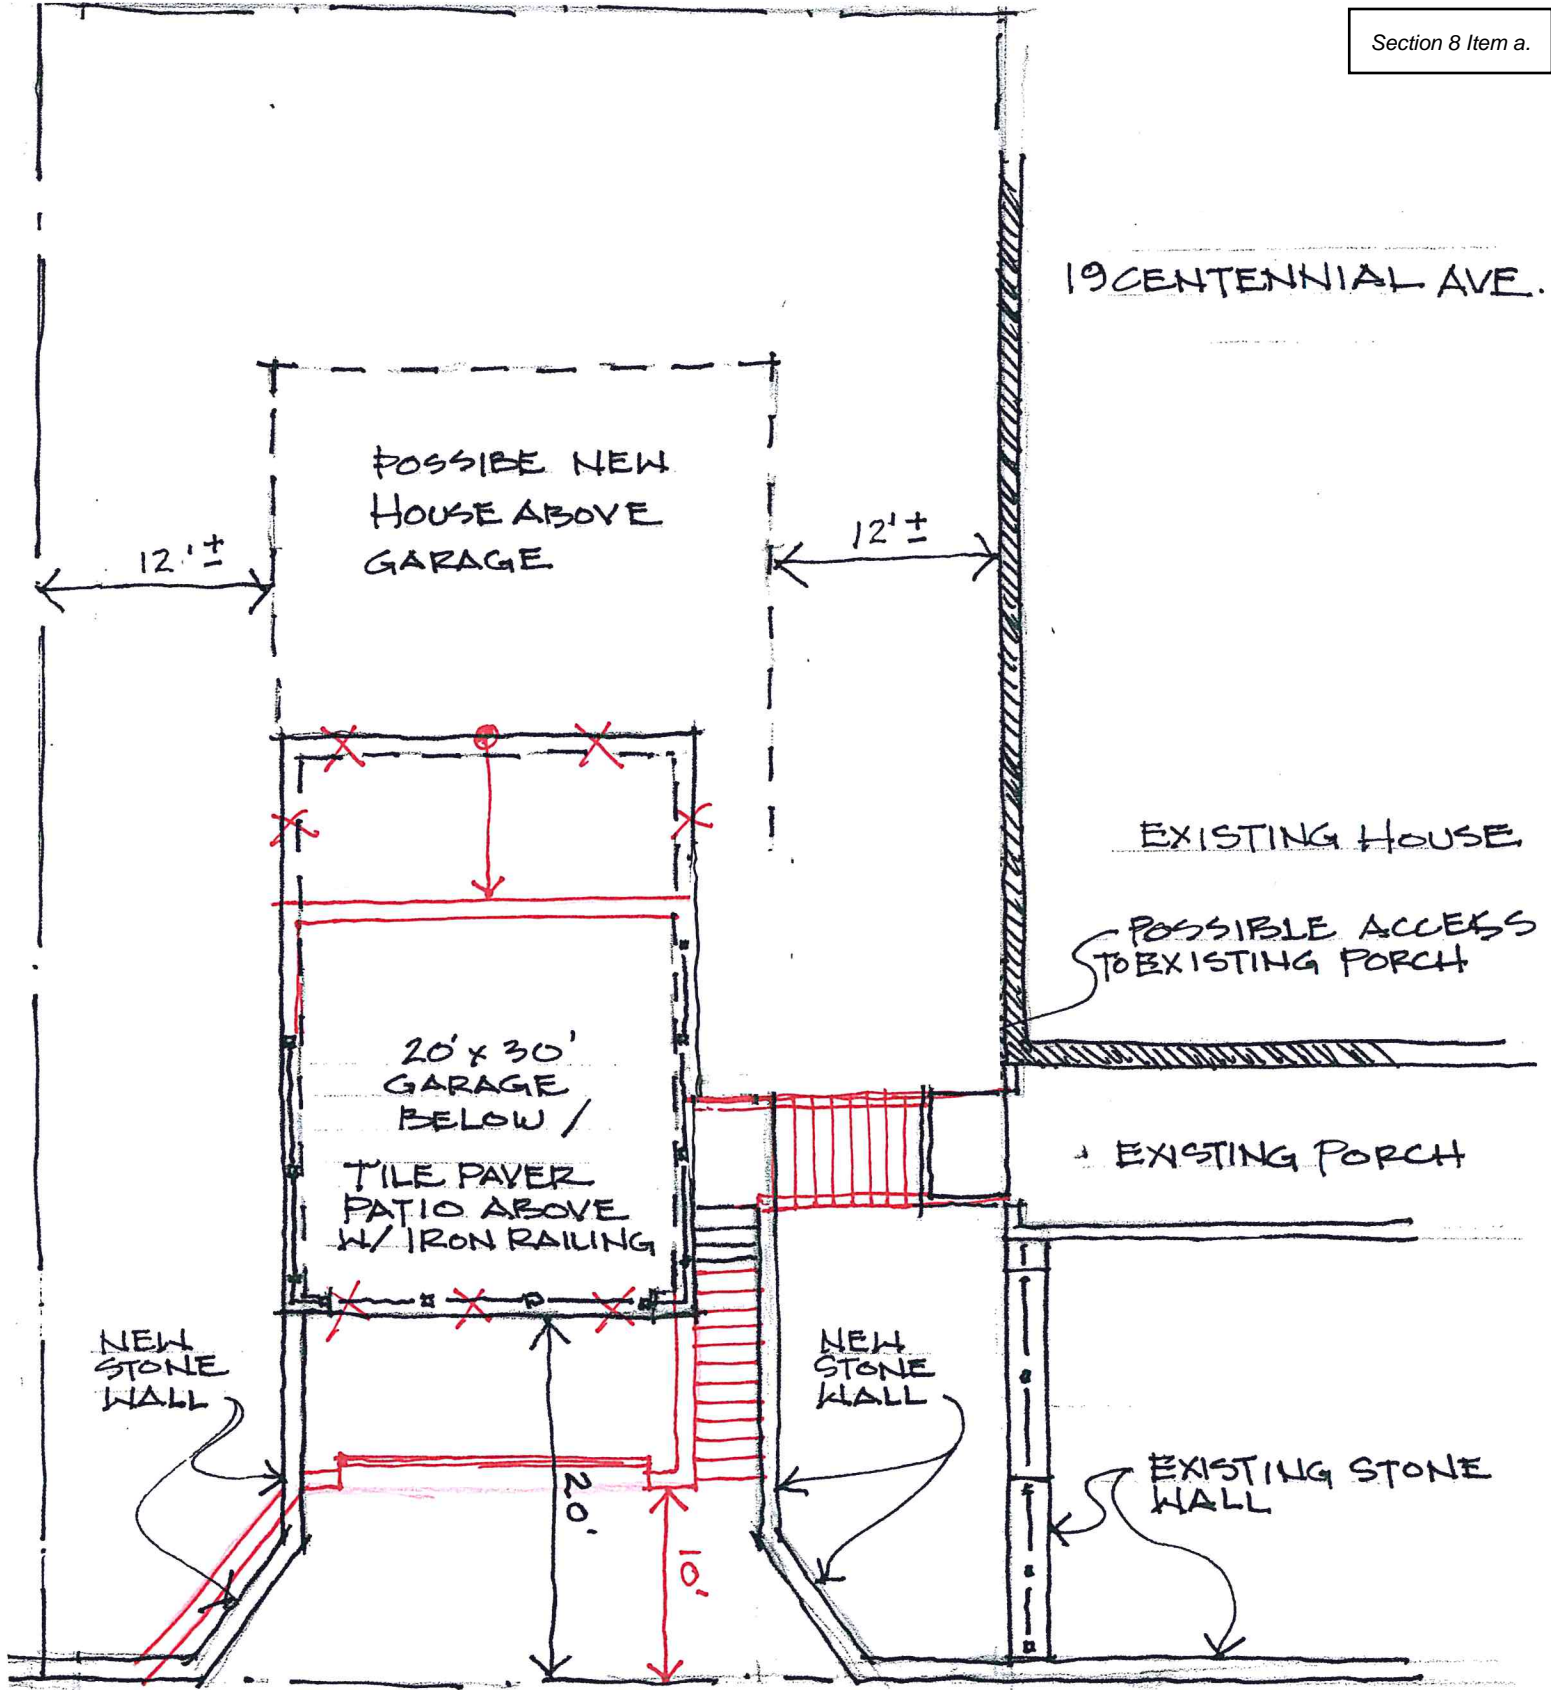 Section 8 Item a.
19 CENTENNIAL AVE.
POSSIBE NEW
HOUSE ABOVE
GARAGE
12'±
12'±
EXISTING HOUSE
POSSIBLE ACCESS
TO EXISTING PORCH
20' x 30'
GARAGE
BELOW /
TILE PAVER
PATIO ABOVE
W/ IRON RAILING
EXISTING PORCH
NEW
STONE
WALL
NEW
STONE
WALL
EXISTING STONE
WALL
20'
10'